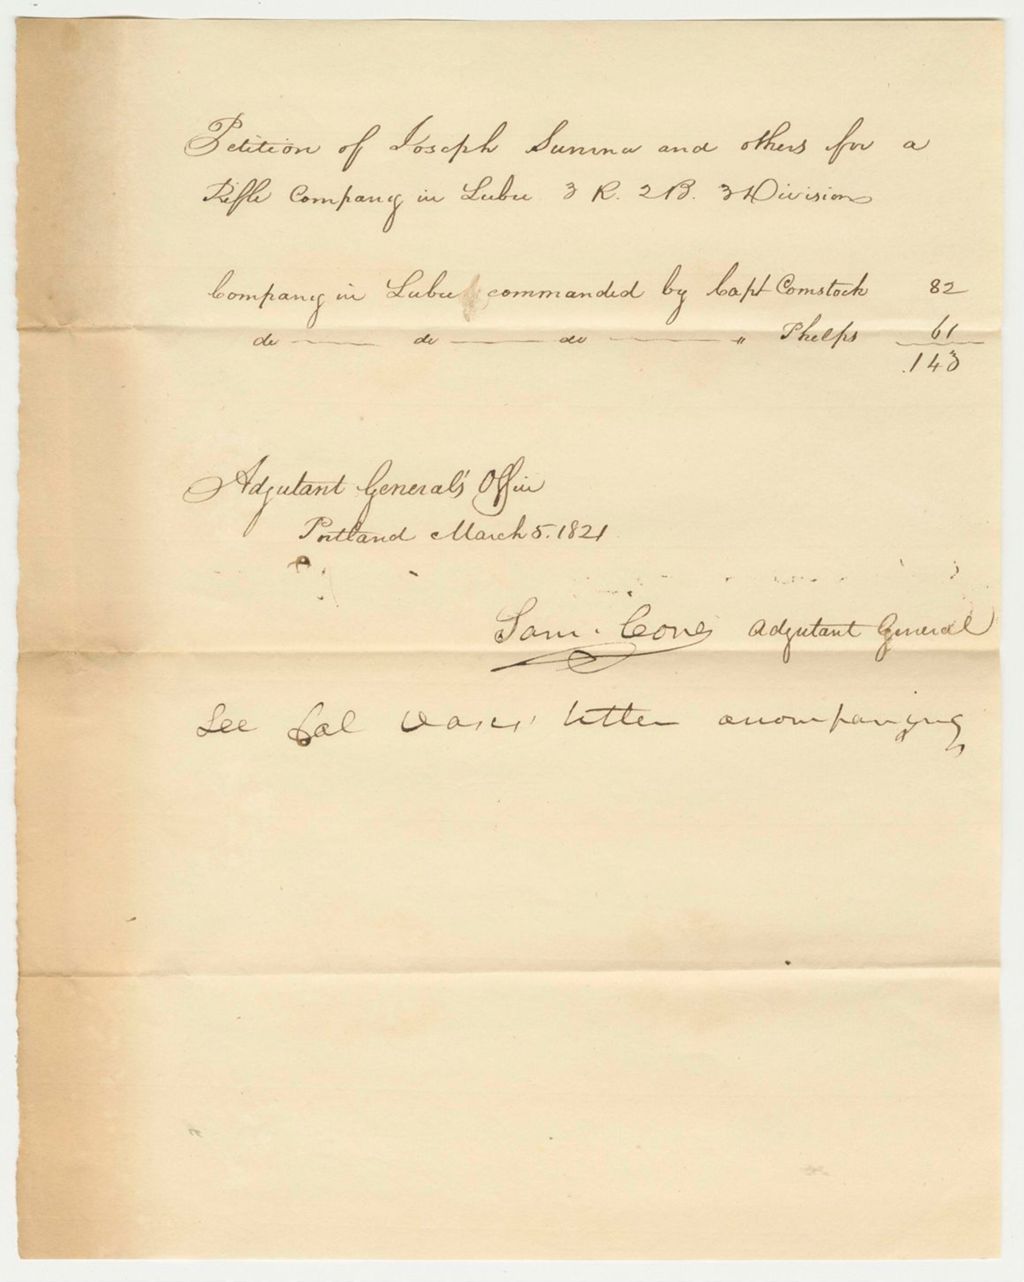 Petition of Joseph Sumner and others for a
Rifle Company in Lubec 3 R. 2 B. 3 Division
Company in Lubec commanded by Capt Comstock 82
do — do — do — " Phelps 61
143
Adjutant General's Office
Portland March 5. 1821
Sam. Cony Adjutant General
See Col letter accompanying